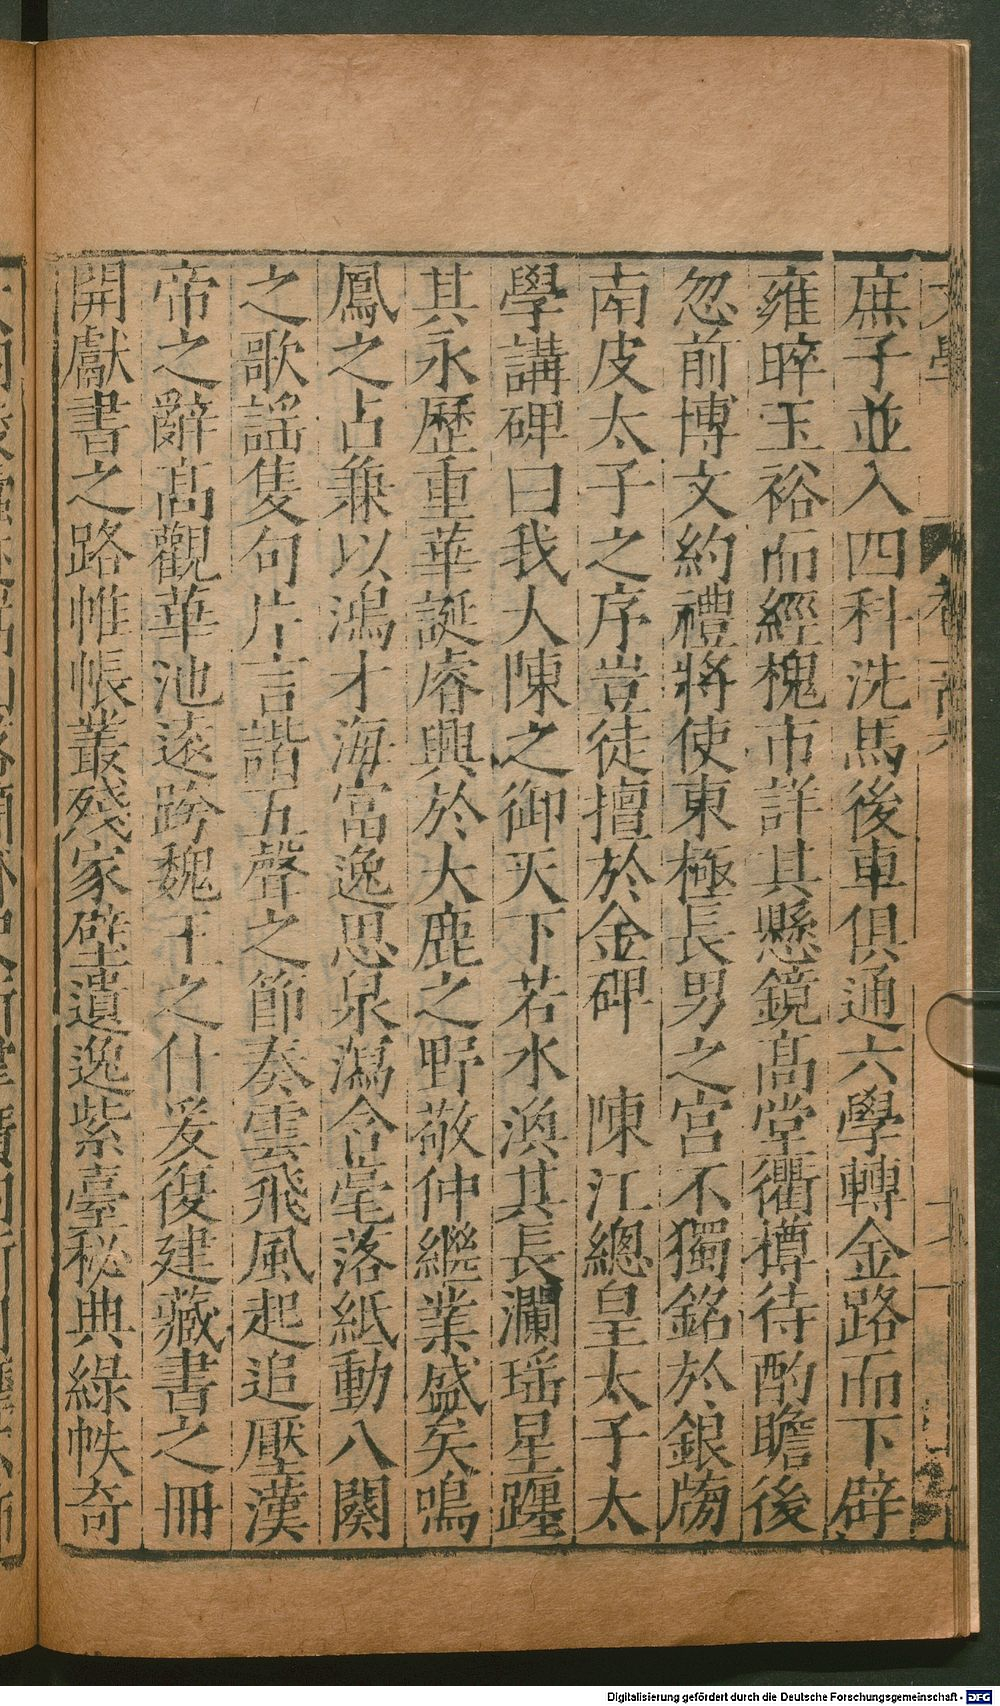 庶子並入四科洗馬後車俱通六學轉金路而下辟
雍晬玉裕而經槐市詳其懸鏡高堂衢樽待酌瞻後
忽前博文約禮將使東極長男之宮不獨銘於銀牓
南皮太子之序豈徒擅於金碑　陳江總皇太子太
學講碑曰我大陳之御天下若水渙其長瀾瑶星躔
其永歷重華誕睿興於大鹿之野敬仲繼業盛矣鳴
鳳之占兼以鴻才海富逸思泉瀉含毫落紙動八闋
之歌謡隻句片言諧五聲之節奏雲飛風起追壓漢
帝之辭高觀華池遠跨魏王之什爰復建藏書之冊
開獻書之路帷帳叢殘家壁遺逸紫臺秘典綠帙奇
Digitalisierung gefördert durch die Deutsche Forschungsgemeinschaft - DFG